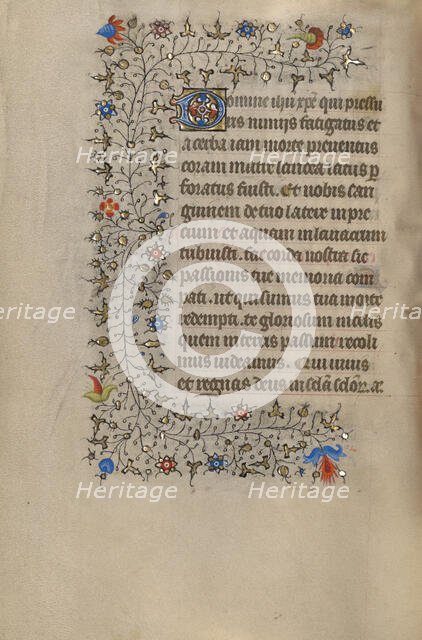 Domine ihu xpe qui pressu
ris nimijs fatigatus et
acerba iam morte preventus
coram matre lancea latus p
foratus fuisti. Et nobis san
guinem de tuo latere in pre
cium et aquam in lavacrum
tribuisti. fac corda nostra sic
passionis tue memoria com
pati. ut qui sumus tua morte
redempti. te gloriosum in celis
quem in terris passum recoli
mus videamus. Qui vivis
et regnas deus. in scla sclor. a
Heritage
Heritage
Heritage
Heritage
Heritage
Heritage
Heritage
©